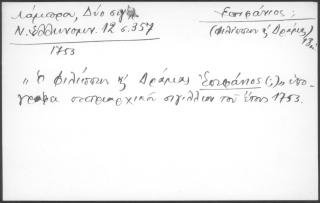 Λάμπρου, Δύο σιγίλ.
Ν. Ἑλληνομν. 12 σ. 357
1753
Ἐπιφάνιος ;
(Φιλίππων κ Δράμας)
" ὁ Φιλίππων κ Δράμας Ἐπιφάνιος (;) ὑπο-
γράφει πατριαρχικὸν σιγίλλιον τοῦ ἔτους 1753.